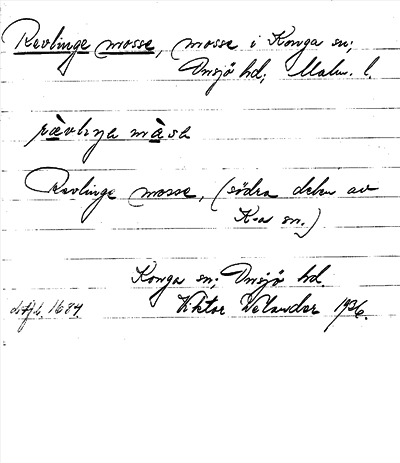 Revlinge mosse, mosse i Konga sn;
Onsjö hd; Malm. l.
rävlıŋa måsa
Revlinge mosse, (södra delen av
K-a sn.)
Konga sn; Onsjö hd.
1684. Viktor Welander 1936.